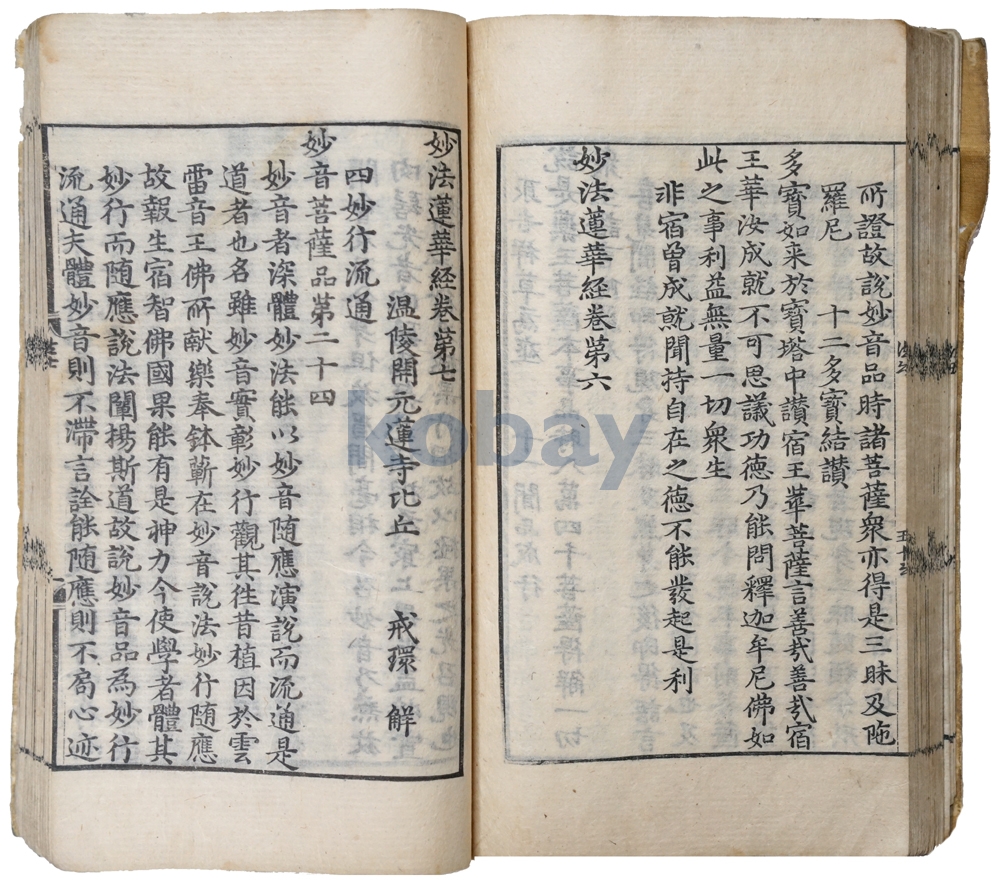 所證故說妙音品時諸菩薩衆亦得是三昧及陁
羅尼 十二多寶結讚
多寶如来於寶塔中讚宿王華菩薩言善㢤善㢤宿
王華汝成就不可思議功德乃能問釋迦牟尼佛如
此之事利益無量一切衆生
非宿曾成就聞持自在之德不能發起是利
妙法蓮華経卷苐六
妙法蓮華経卷苐七
温陵開元蓮寺比丘 戒環 解
四妙行流通
妙音菩薩品苐二十四
妙音者深體妙法能以妙音随應演說而流通是
道者也名雖妙音實彰妙行觀其徃昔植因於雲
雷音王佛所献樂奉鉢蘄在妙音說法妙行随應
故報生宿智佛國果能有是神力今使學者體其
妙行而随應說法闡揚斯道故說妙音品為妙行
流通夫體妙音則不滯言詮能随應則不局心迹
kobay